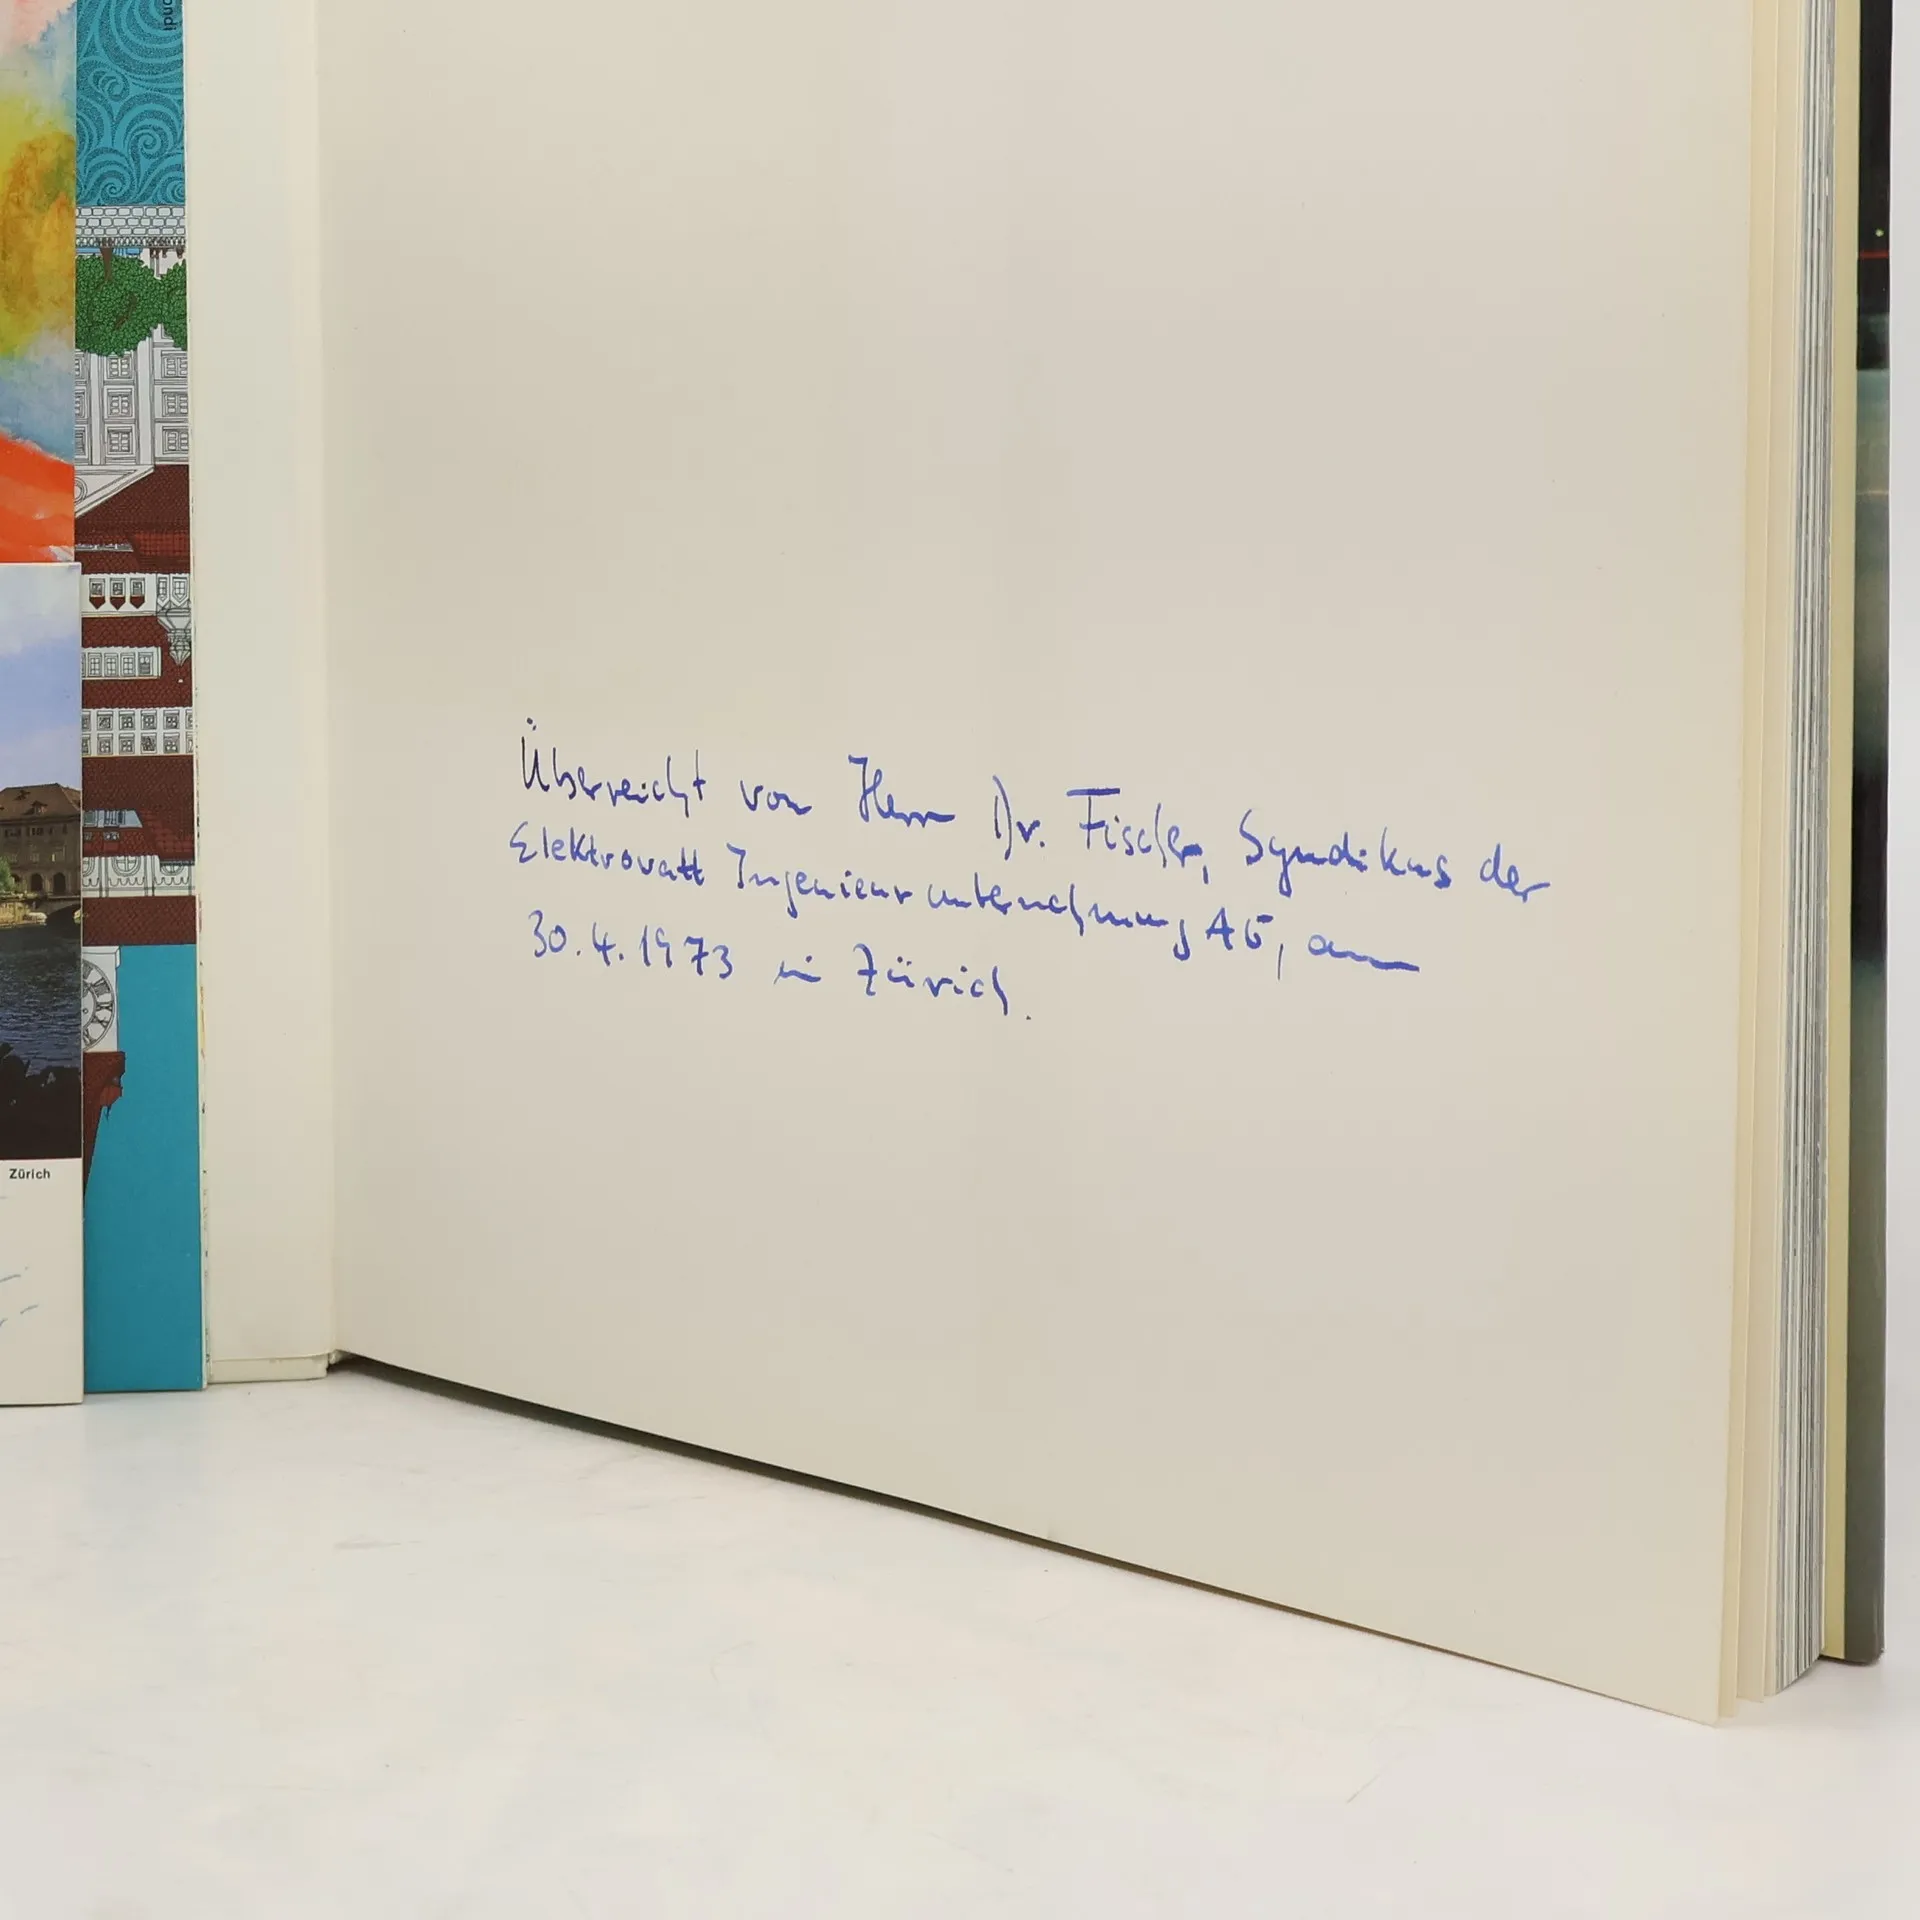 Überreicht von Herrn Dr. Fischer, Syndikus der
Elektrowatt Ingenieurunternehmung AG, am
30.4.1973 in Zürich.
Zürich